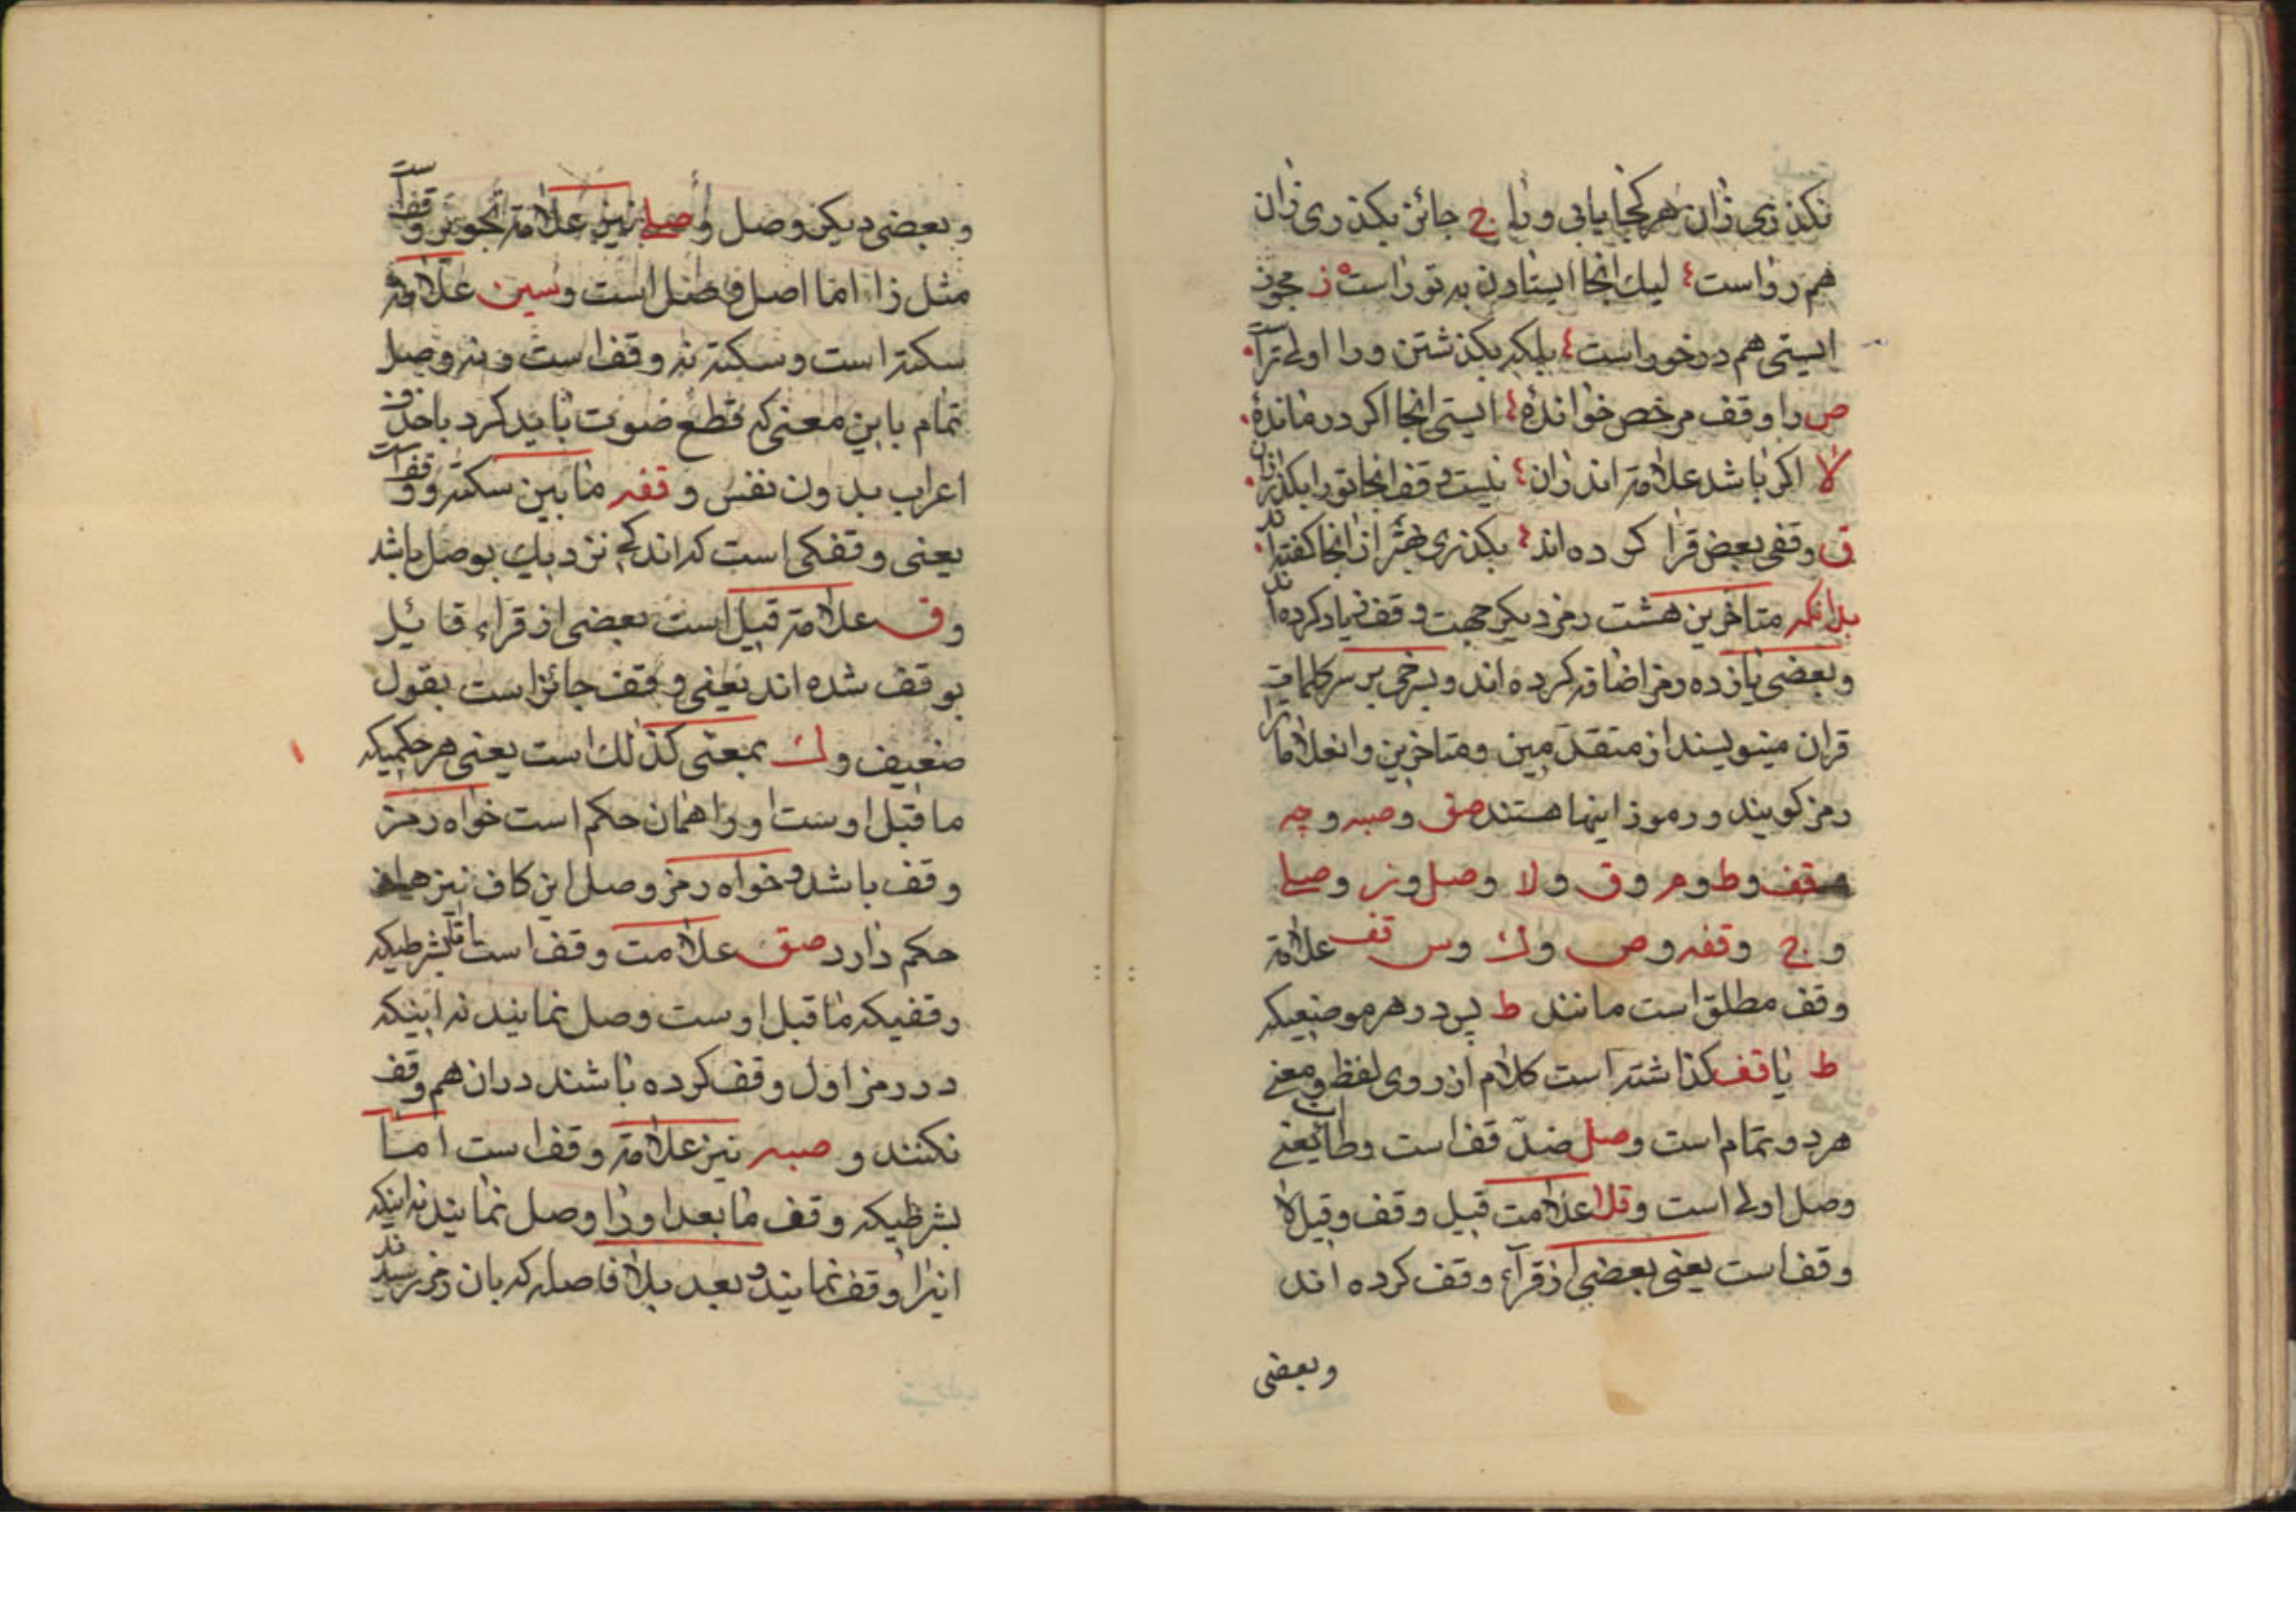 نکذری زان هر کجا یابی ورا ج جائز بکذری زان
هم رواست لیک انجا ایستادن به تو راست ز مجوز
ایستی هم در خور است بلکه بکذشتن ورا اولی تر است
ص را وقف مرخص خواندهٔ ایستی انجا اکر درماندهٔ
لا اکر باشد علامة اندران نیست وقف انجا تو را بکذر زان
ق وقفی بعض قرا کرده اند بکذری بهتر از انجا کفته اند
بدانکه متاخرین هشت رمز دیکر جهت وقف زیاد کرده اند
وبعضی یازده رمز اضافه کرده اند و بسرخی بر سر کلمات
قران مینویسند از متقدمین ومتاخرین وانعلامات را
رمز کویند و رموز اینها هستند صق وصبه وچه
قف وط وم وق ولا وصل وز وصلے
وج وقفه وص وك وس قف علامة
وقف مطلق است مانند ط پس در هر موضعیکه
ط یا قف کذاشته است کلام از روی لفظ ومعنی
هر دو تمام است وصل ضدّ قف است وطا یعنی
وصل اولی است وقلا علامت قیل وقف وقیل لا
وقف است یعنی بعضی از قرآء وقف کرده اند
وبعضی
وبعضی دیکر وصل وصلے نیز علامة تجویز وقف است
مثل زا اما اصل وصل است وسین علامة
سکته است وسکته نه وقف است ونه وصل
تمام باین معنی که قطع صوت باید کرد با حذف
اعراب بدون نفس و قفه مابین سکته و وقف است
یعنی وقفکی است که اندکے نزدیك بوصل باشد
وق علامة قیل است بعضی از قراء قائیل
بوقف شده اند یعنی وقف جائز است بقول
ضعیف وك بمعنی کذلك است یعنی هر حکمیکه
ماقبل اوست او را همان حکم است خواه رمز
وقف باشد وخواه رمز وصل این کاف نیز همان
حکم دارد صق علامت وقف است اما بشرطیکه
وقفیکه ماقبل اوست وصل نمایند نه اینکه
در رمز اول وقف کرده باشند دران هم وقف
نکنند و صبه نیز علامة وقف است امّا
بشرطیکه وقف مابعد او را وصل نمایند نه اینکه
اینرا وقف نمایند وبعد بلا فاصله که بان رمز رسیدند